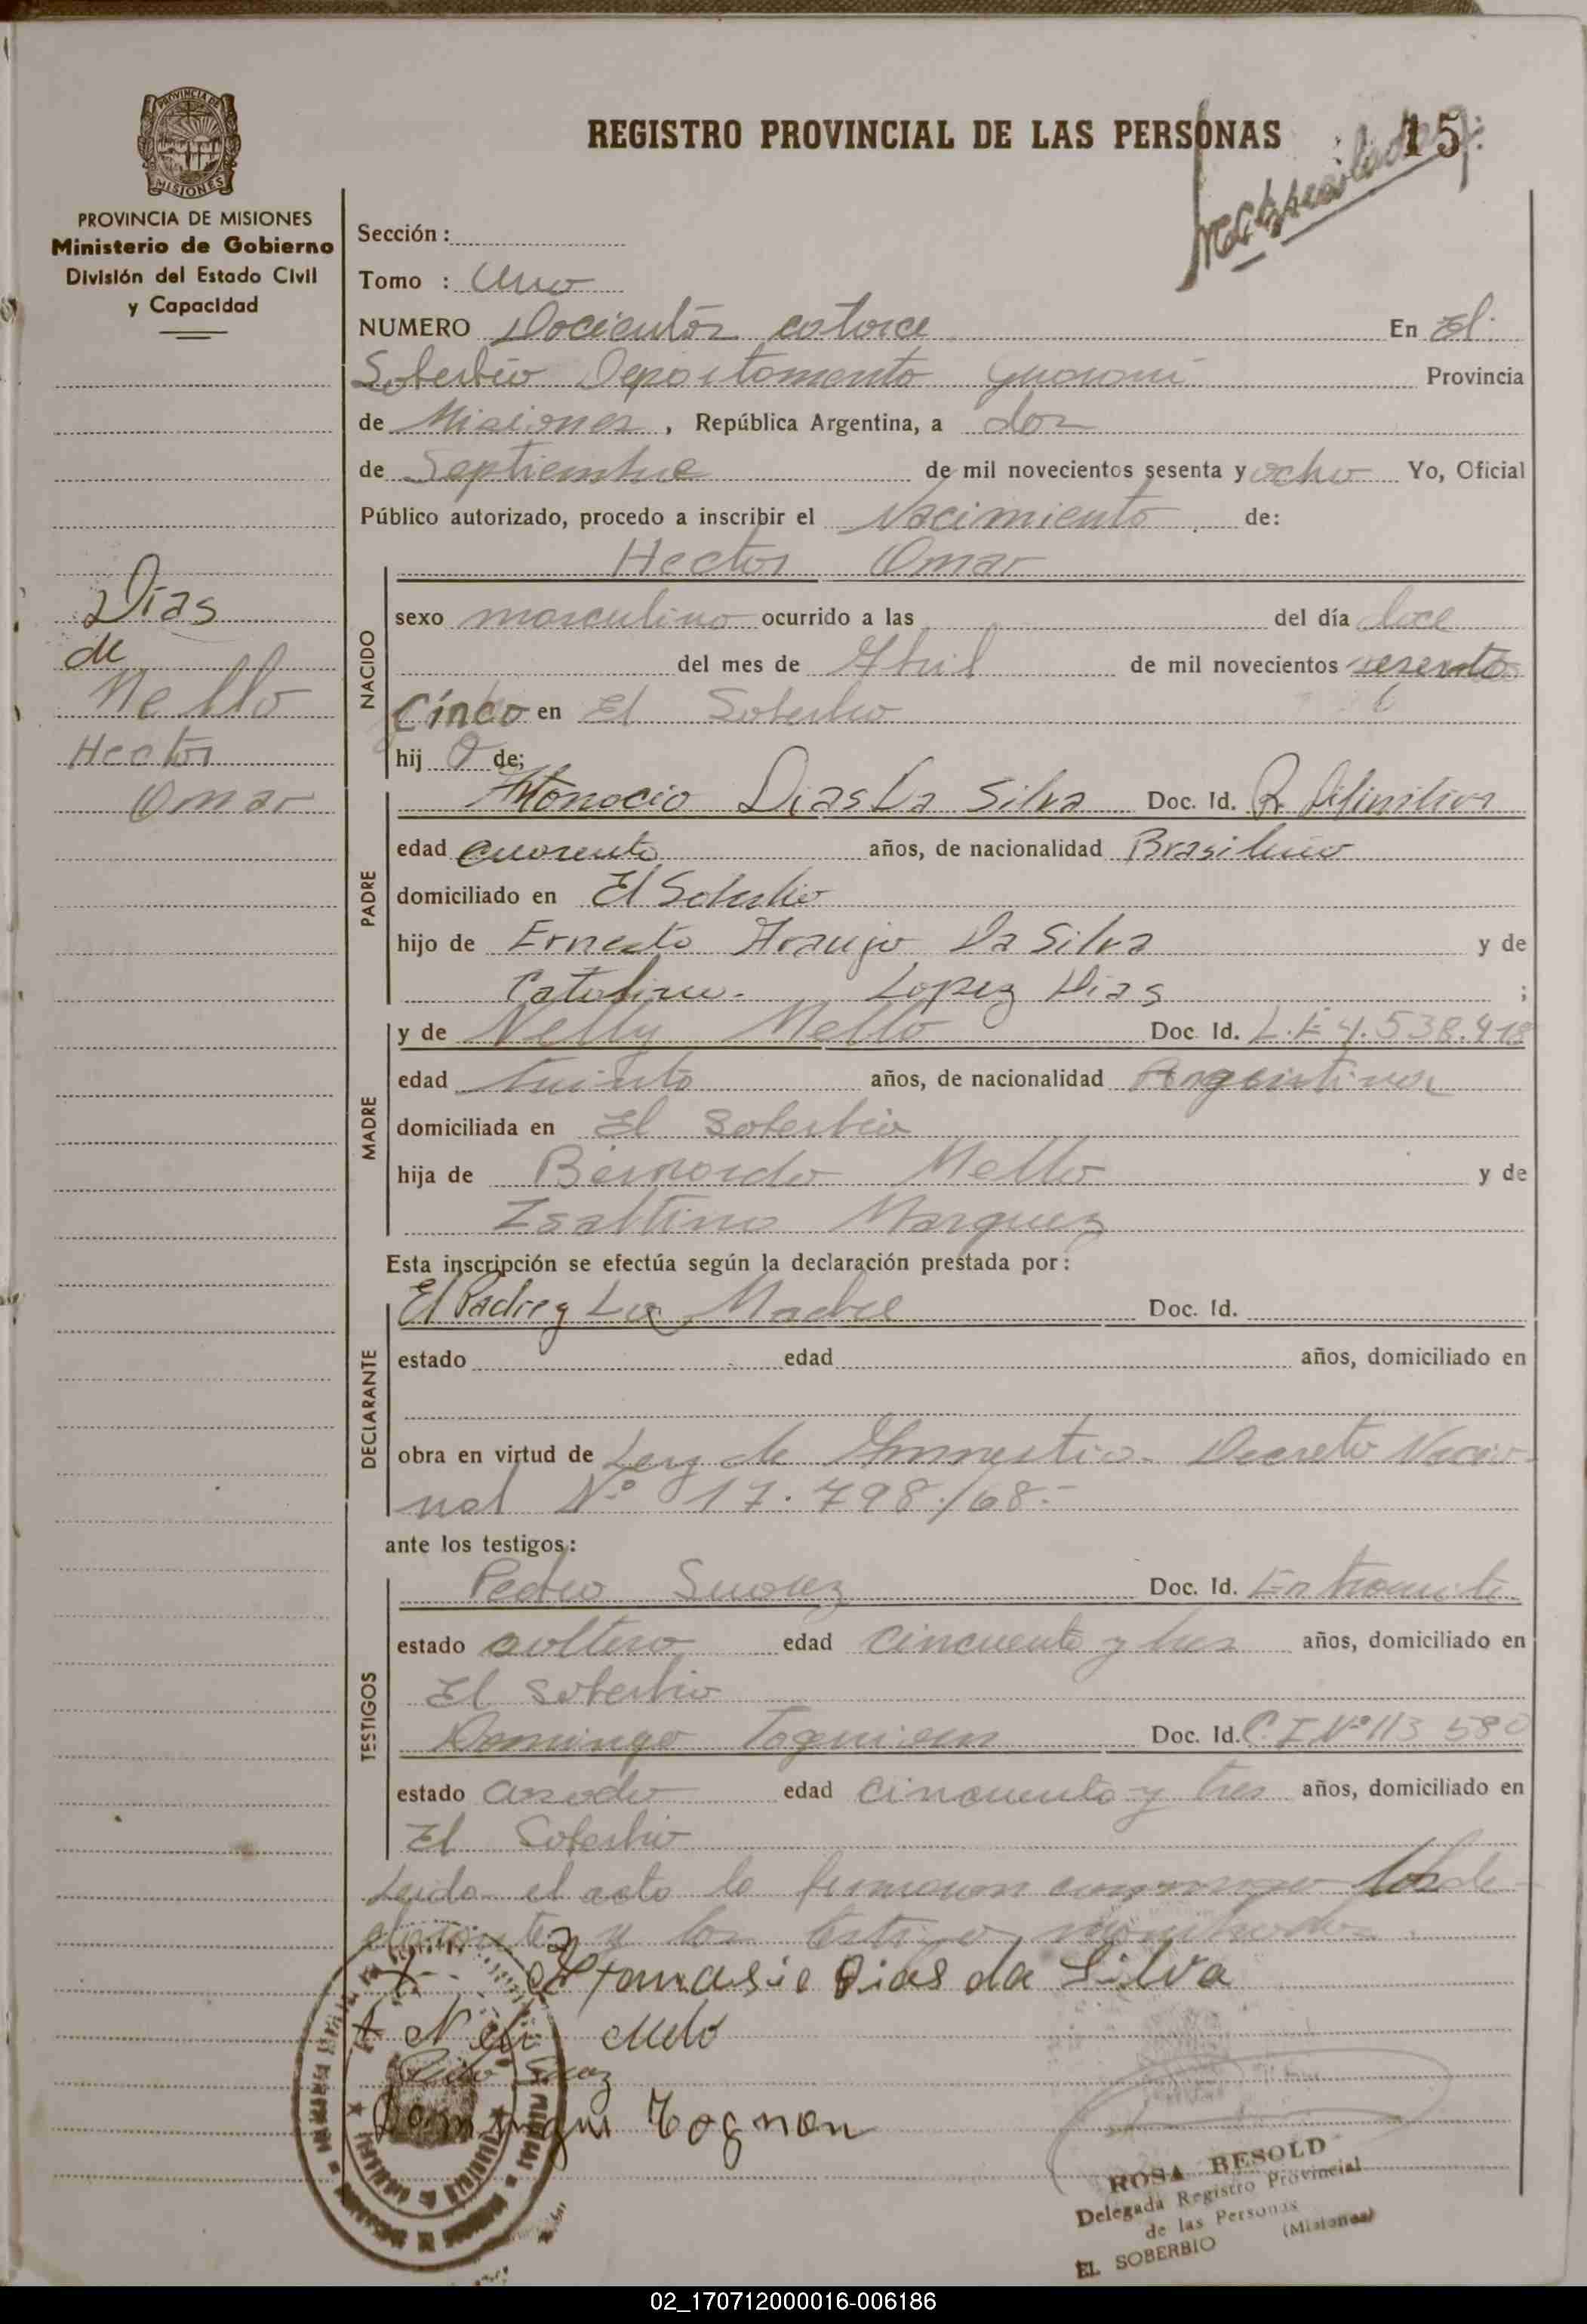 REGISTRO PROVINCIAL DE LAS PERSONAS
15
PROVINCIA DE MISIONES
Ministerio de Gobierno
División del Estado Civil
y Capacidad
Sección :
Tomo : Uno
NUMERO Docientos catorce En El
Soberbio Departamento Guarani Provincia
de Misiones, República Argentina, a dos
de Septiembre de mil novecientos sesenta y ocho Yo, Oficial
Público autorizado, procedo a inscribir el Nacimiento de:
Dias
de
Mello
Hector
Omar
NACIDO
Hector Omar
sexo masculino ocurrido a las del día doce
del mes de Abril de mil novecientos sesenta
Cinco en El Soberbio
hij o de;
PADRE
Dias Da Silva Doc. Id. R. Difinitiva
edad cuarenta años, de nacionalidad Brasileño
domiciliado en El Soberbio
hijo de Ernesto Araujo Da Silva y de
Catalina Lopez Dias ;
MADRE
y de Nelly Mello Doc. Id.
edad treinta años, de nacionalidad Argentina
domiciliada en El Soberbio
hija de Bernardo Mello y de
Isaltina Marquez
Esta inscripción se efectúa según la declaración prestada por:
DECLARANTE
El Padre y La Madre Doc. Id.
estado edad años, domiciliado en
obra en virtud de Ley de Amnestia Decreto Nacio-
nal Nº 17.798/68.-
ante los testigos:
TESTIGOS
Pedro Suarez Doc. Id. En tramite
estado soltero edad cincuenta y tres años, domiciliado en
El Soberbio
Domingo Doc. Id. C.I Nº 113 580
estado casado edad cincuenta y tres años, domiciliado en
El Soberbio
Leida el acta la firmaron conmigo los de-
clarantes y los testigos
Atanasio Dias da Silva
Melo
ROSA BESOLD
Delegada Registro Provincial
de las Personas
EL SOBERBIO (Misiones)
02_170712000016-006186